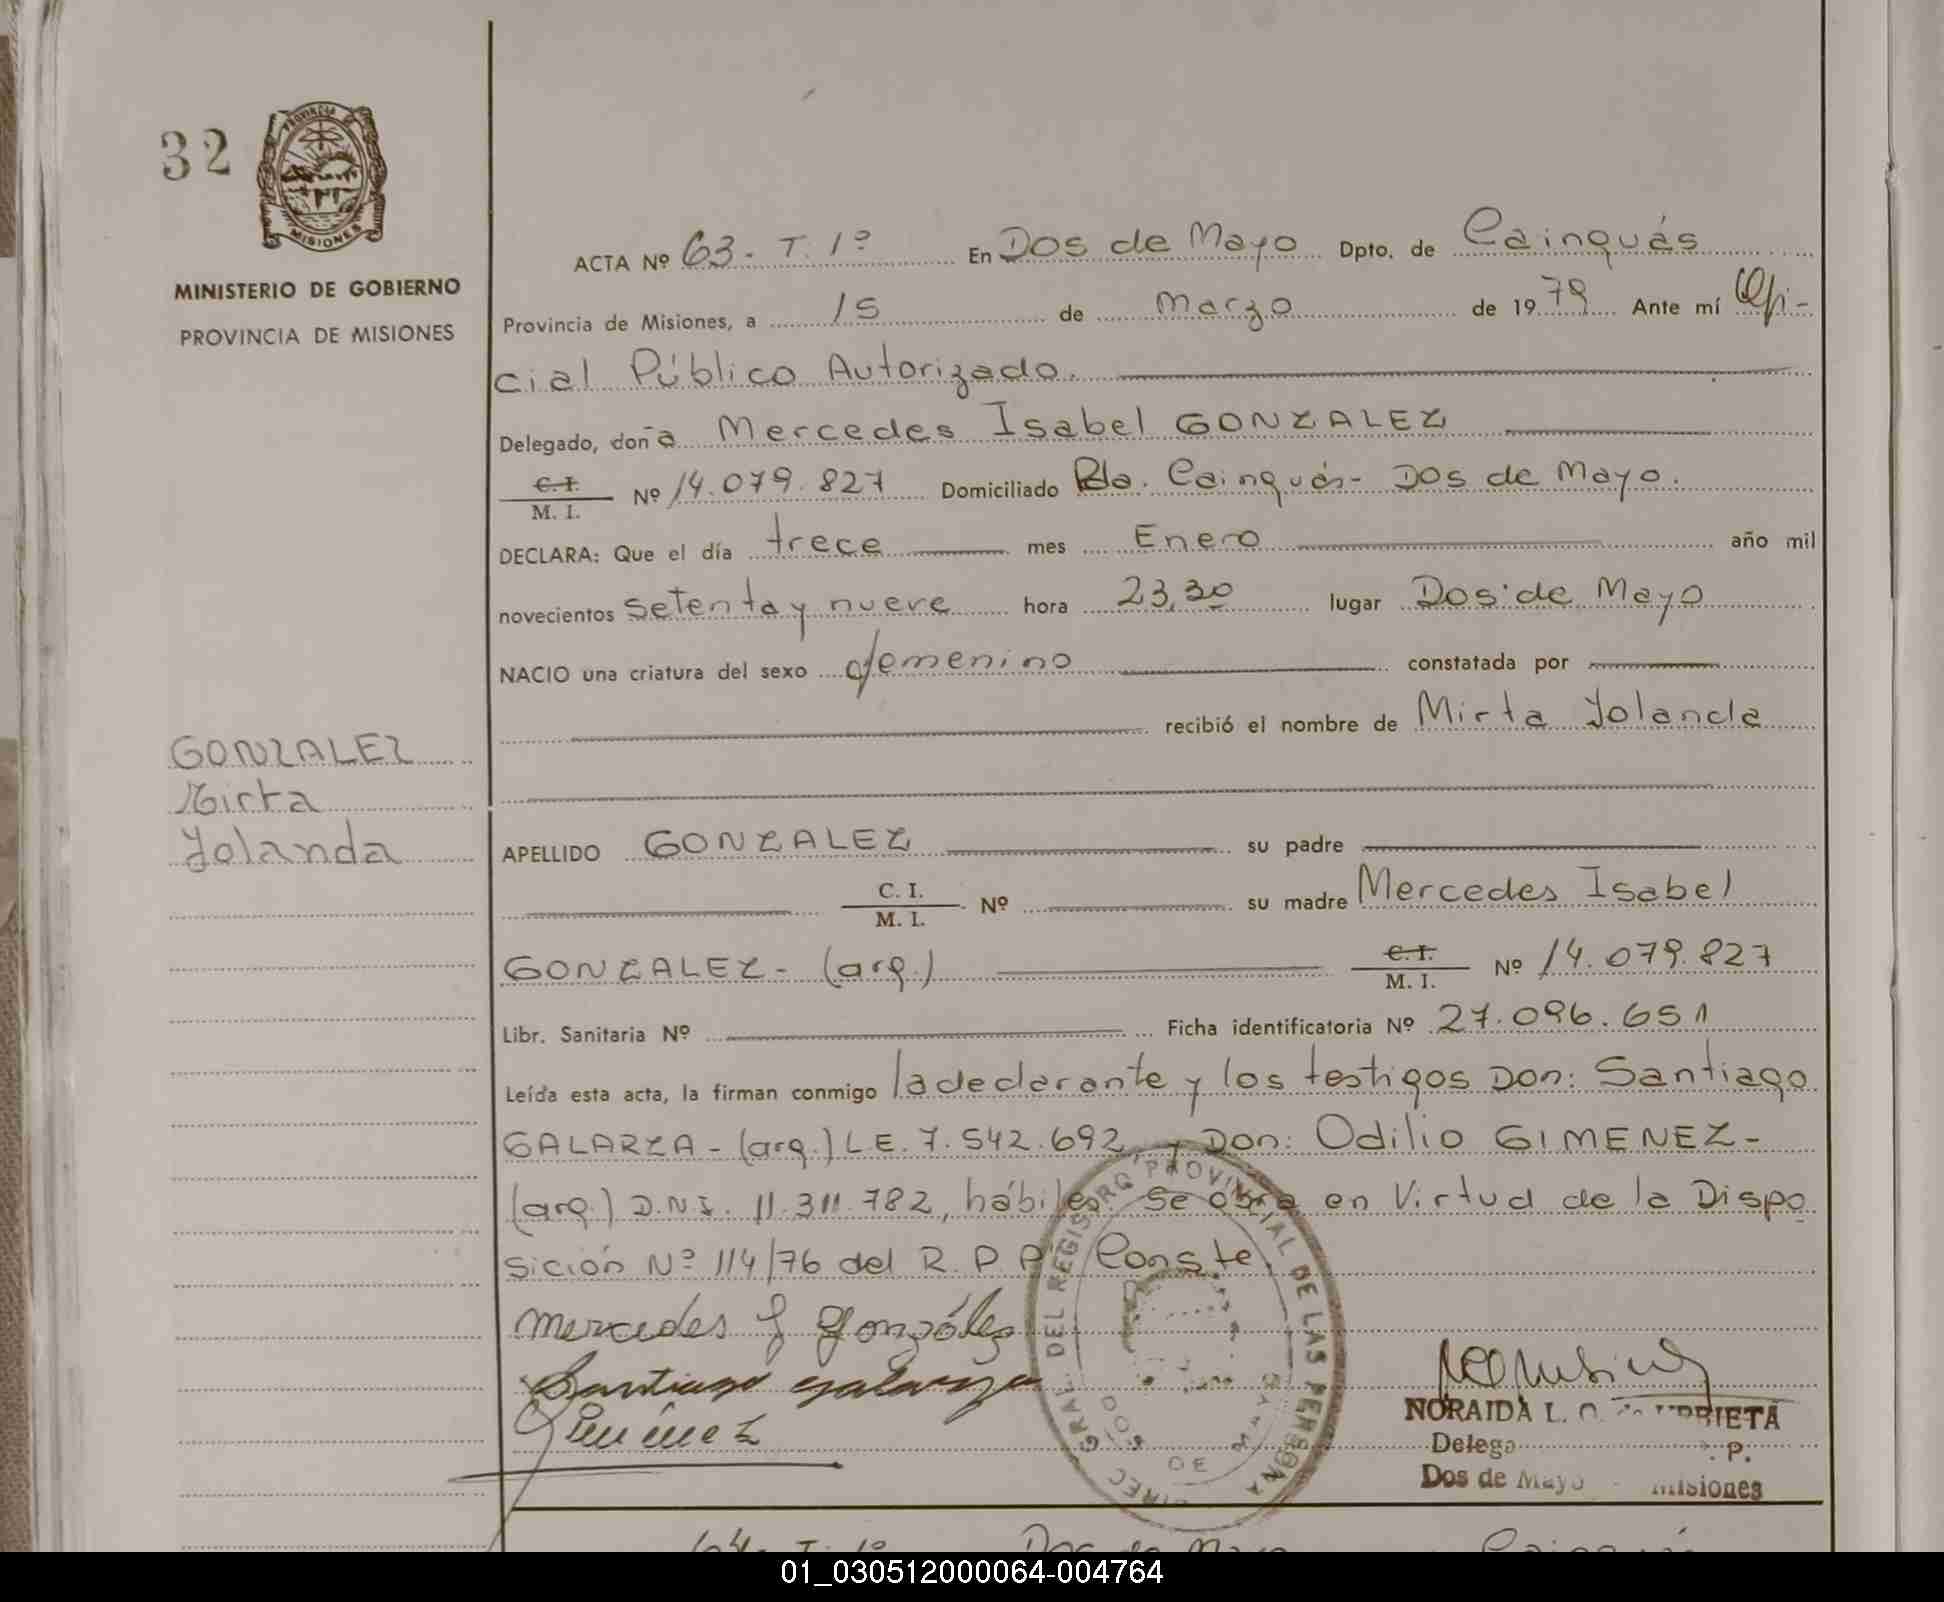 32
PROVINCIA
MISIONES
MINISTERIO DE GOBIERNO
PROVINCIA DE MISIONES
ACTA Nº 63. T. 1º En Dos de Mayo Dpto. de Cainguás
Provincia de Misiones, a 15 de Marzo de 1979 Ante mí Ofi-
cial Público Autorizado.
Delegado, doña Mercedes Isabel GONZALEZ
C. I.
M. I. Nº 14.079.827 Domiciliado Rda. Cainguás- Dos de Mayo.
DECLARA: Que el día trece mes Enero año mil
novecientos setenta y nueve hora 23,30 lugar Dos de Mayo
NACIO una criatura del sexo femenino constatada por
recibió el nombre de Mirta Yolanda
GONZALEZ
Mirta
Yolanda
APELLIDO GONZALEZ su padre
C. I.
M. I. Nº su madre Mercedes Isabel
GONZALEZ- (arg.) C. I.
M. I. Nº 14.079.827
Libr. Sanitaria Nº Ficha identificatoria Nº 27.096.651
Leída esta acta, la firman conmigo la declarante y los testigos Don: Santiago
GALARZA- (arg.) L.E. 7.542.692 y Don: Odilio GIMENEZ-
(arg.) D.N.I. 11.311.782, hábiles. Se obra en Virtud de la Dispo
sición Nº 114/76 del R.P.P. Conste.
Mercedes I González
Santiago Galarza
Gimenez
DIREC. GRAL. DEL REGISTRO PROVINCIAL DE LAS PERSONAS
DOS DE MAYO
NORAIDA L.
Dos de Mayo - Misiones
64- T. 1º Dos de Mayo Cainguás
01_030512000064-004764